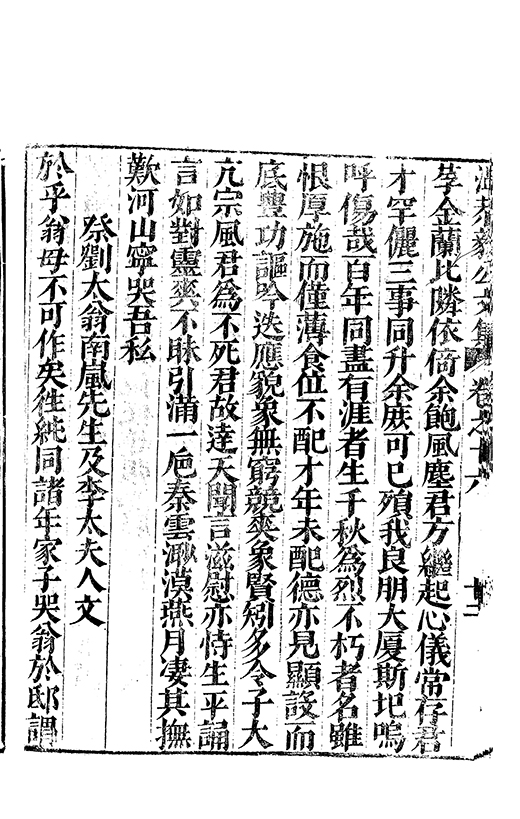 孝毅公文集 卷之十六 十二
孪金蘭比隣依倚余飽風塵君方繼起心儀常存君
才罕儷三事同升余厥可已殞我良朋大厦斯圯嗚
呼傷哉百年同盡有涯者生千秋為烈不朽者名雖
恨厚施而僅薄食位不配才年未配德亦見顯設而
底豐功謳吟迭應貌象無窮競爽象賢矧多令子大
亢宗風君為不死君故達天聞言滋慰亦恃生平誦
言如對靈爽不昧引滿一巵秦雲漱漠燕月凄其撫
歎河山寧哭吾私
祭劉太翁南嵐先生及李太夫人文
於乎翁毋不可作矣徃純同諸年家子哭翁於邸謂